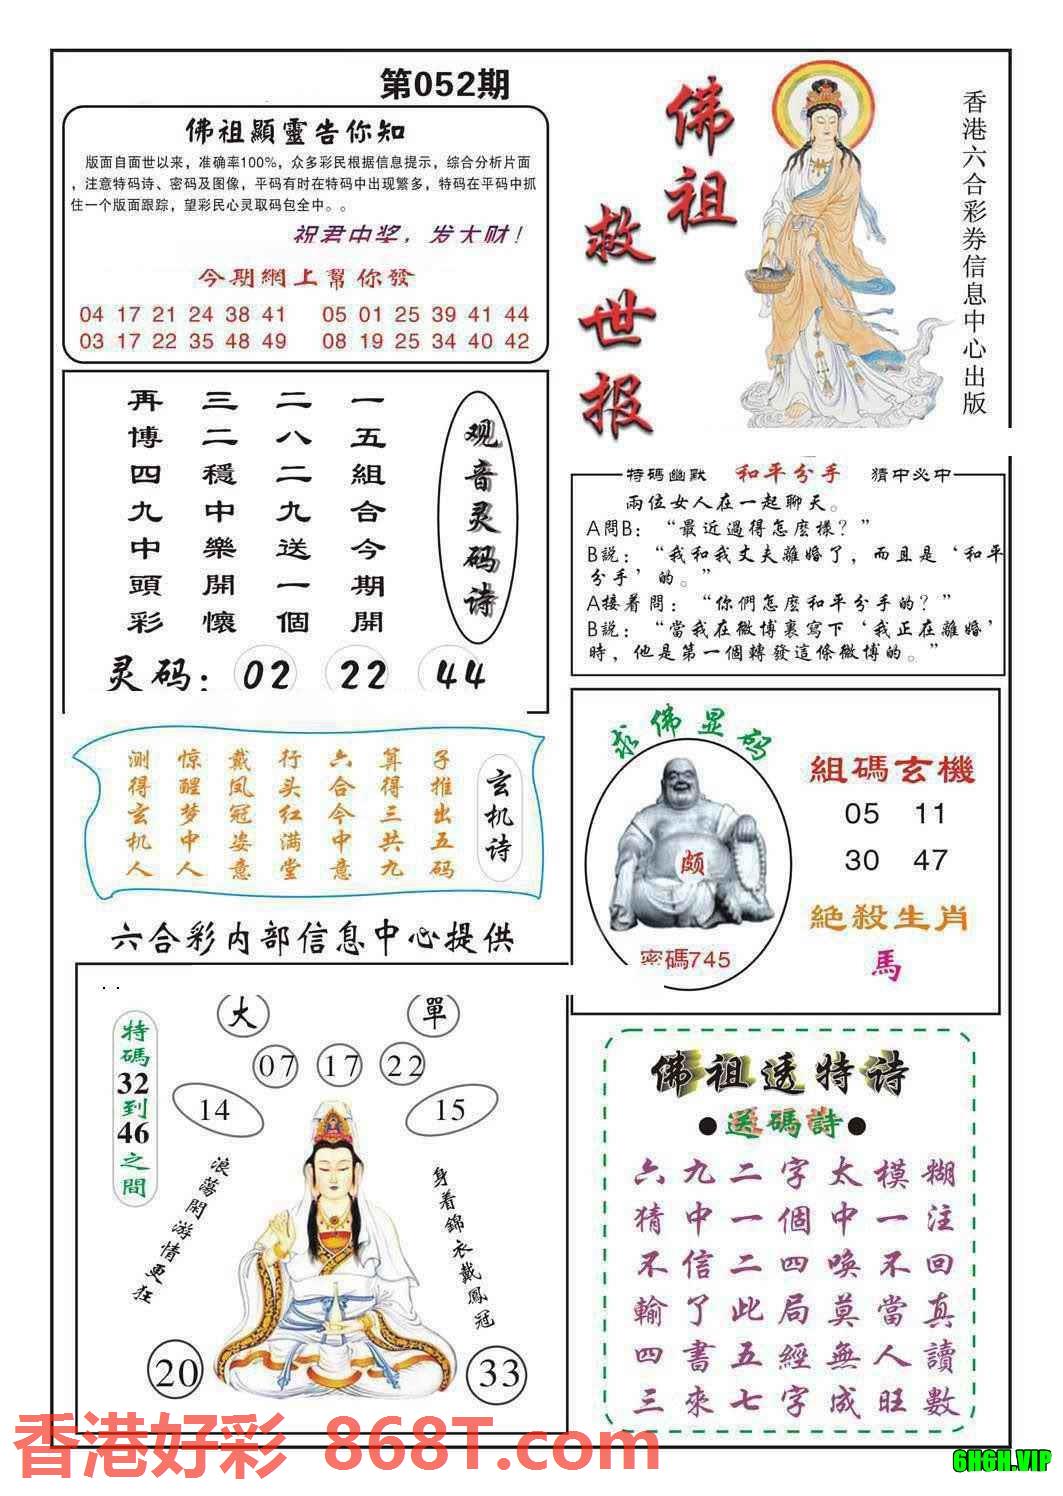 第052期
佛祖顯靈告你知
版面自面世以来，准确率100%，众多彩民根据信息提示，综合分析片面
，注意特码诗、密码及图像，平码有时在特码中出现繁多，特码在平码中抓
住一个版面跟踪，望彩民心灵取码包全中。。
祝君中奖，发大财！
今期網上幫你發
04 17 21 24 38 41 05 01 25 39 41 44
03 17 22 35 48 49 08 19 25 34 40 42
佛祖
救世报
香港六合彩券信息中心出版
观音灵码诗
一五組合今期開
二八二九送一個
三二穩中樂開懷
再博四九中頭彩
灵码：02 22 44
特碼幽默 和平分手 猜中必中
兩位女人在一起聊天。
A問B：“最近過得怎麽樣？”
B説：“我和我丈夫離婚了，而且是‘和平
分手’的。”
A接着問：“你們怎麽和平分手的？”
B説：“當我在微博裹寫下‘我正在離婚’
時，他是第一個轉發這條微博的。”
玄机诗
子推出五码
算得三共九
六合今中意
行头红满堂
戴凤冠姿意
惊醒梦中人
测得玄机人
求佛显码
颇
密碼745
組碼玄機
05 11
30 47
絶殺生肖
馬
六合彩内部信息中心提供
大 單
07 17 22
14 15
特碼32到46之間
浪蕩閑游情更狂
身着錦衣戴鳳冠
20 33
佛祖透特诗
●送碼詩●
六九二字太模糊
猜中一個中一注
不信二四唤不回
輸了此局莫當真
四書五經無人讀
三來七字成旺數
香港好彩 868T.com
6H6H.VIP